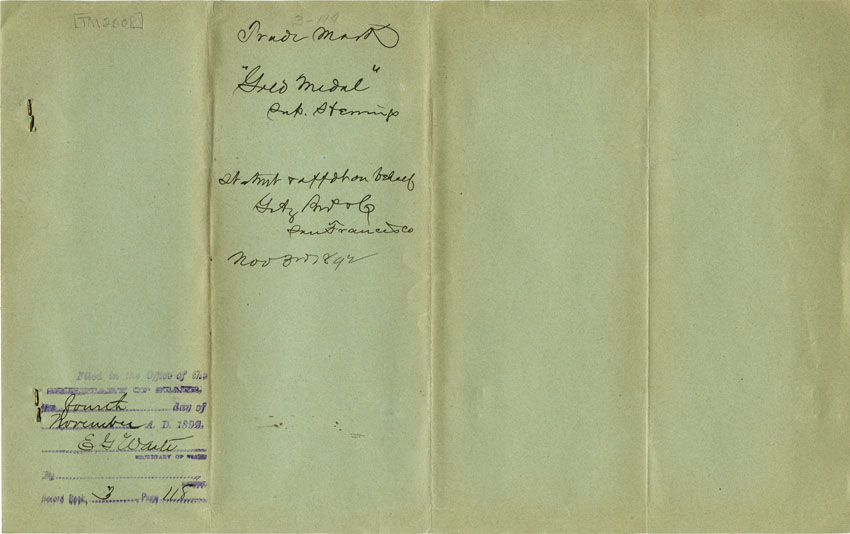 [TM2008]
Trade Mark
"Gold Medal"
Imp. Herrings
Stmt & affdt on behalf
Getz Bro & Co
San Francisco
Nov 3rd 1892
Filed in the Office of the
SECRETARY OF STATE,
the fourth day of
November A. D. 1892.
E G Waite
SECRETARY OF STATE
By
Record Book, 3 Page 118